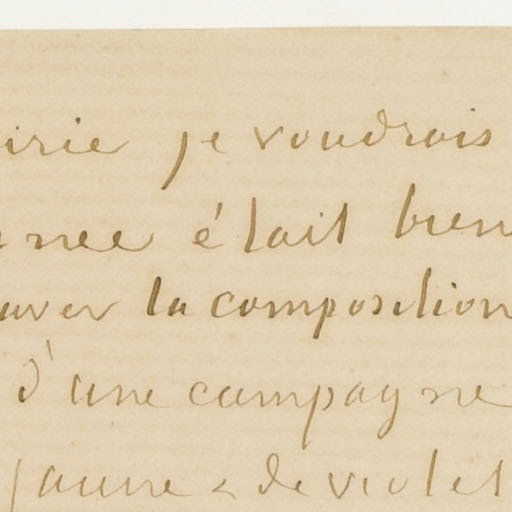 irie je voudrais
nee était bien
uver la composition
d'une campagne
jaune & de violet